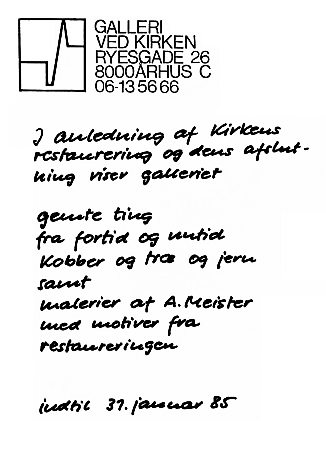 GALLERI
VED KIRKEN
RYESGADE 26
8000 ÅRHUS C
06-13 56 66
I anledning af Kirkens
restaurering og dens afslut-
ning viser galleriet
gemte ting
fra fortid og nutid
Kobber og træ og jern
samt
malerier af A. Meister
med motiver fra
restaureringen
indtil 31. januar 85